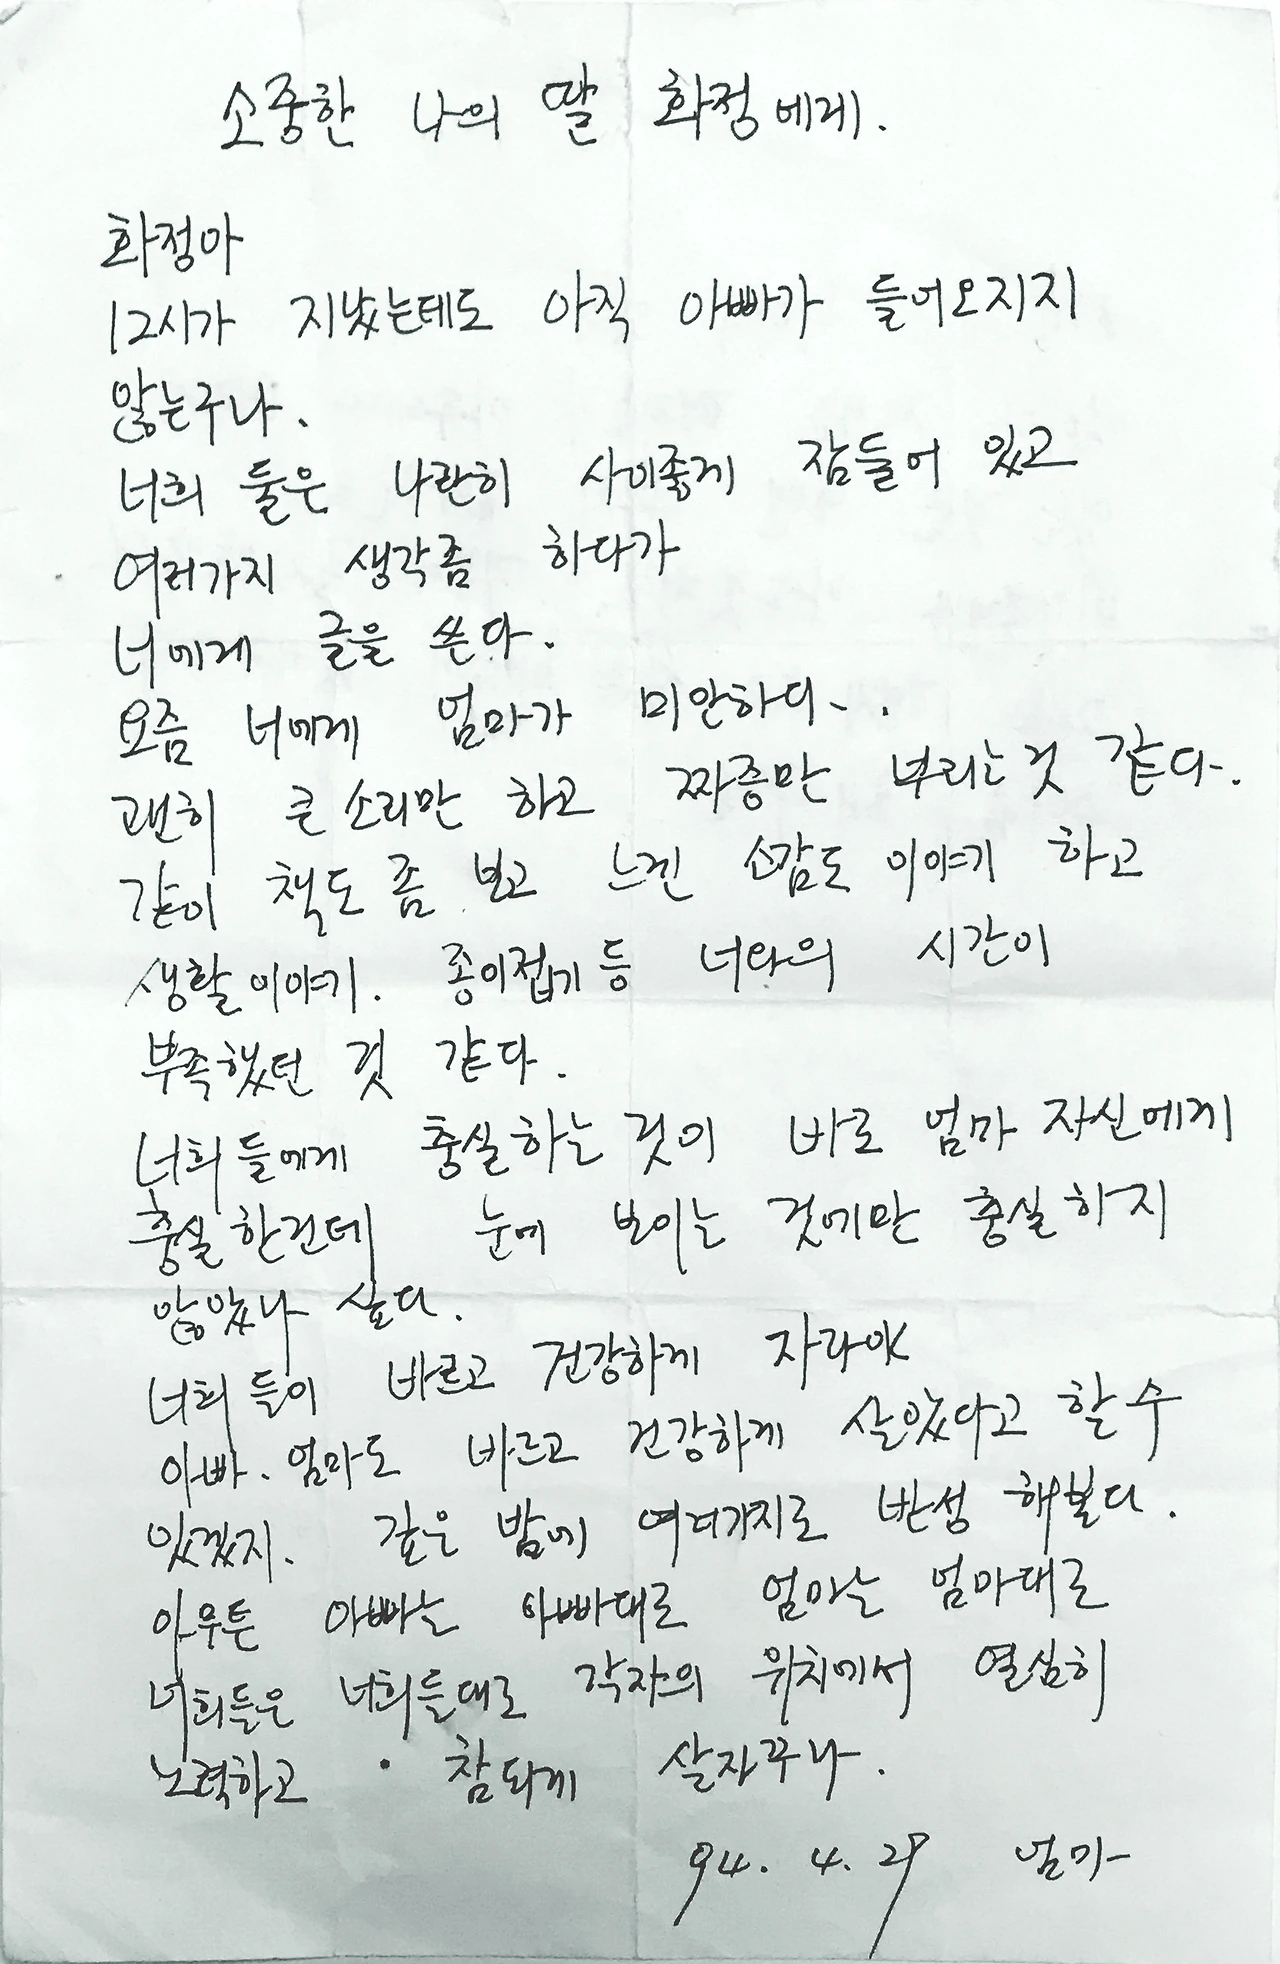 소중한 나의 딸 화정에게.
화정아
12시가 지났는데도 아직 아빠가 들어오지지
않는구나.
너희 둘은 나란히 사이좋게 잠들어 있고
여러가지 생각좀 하다가
너에게 글을 쓴다.
요즘 너에게 엄마가 미안하다.
괜히 큰소리만 하고 짜증만 부리는것 같다.
같이 책도 좀 보고 느낀 소감도 이야기 하고
생활이야기. 종이접기 등 너와의 시간이
부족했던 것 같다.
너희들에게 충실하는 것이 바로 엄마 자신에게
충실한건데 눈에 보이는 것에만 충실하지
않았나 싶다.
너희들이 바르고 건강하게 자라야
아빠. 엄마도 바르고 건강하게 살았다고 할수
있겠지. 깊은 밤에 여러가지로 반성 해본다.
아무튼 아빠는 아빠대로 엄마는 엄마대로
너희들은 너희들대로 각자의 위치에서 열심히
노력하고 참되게 살자꾸나.
94. 4. 29 엄마